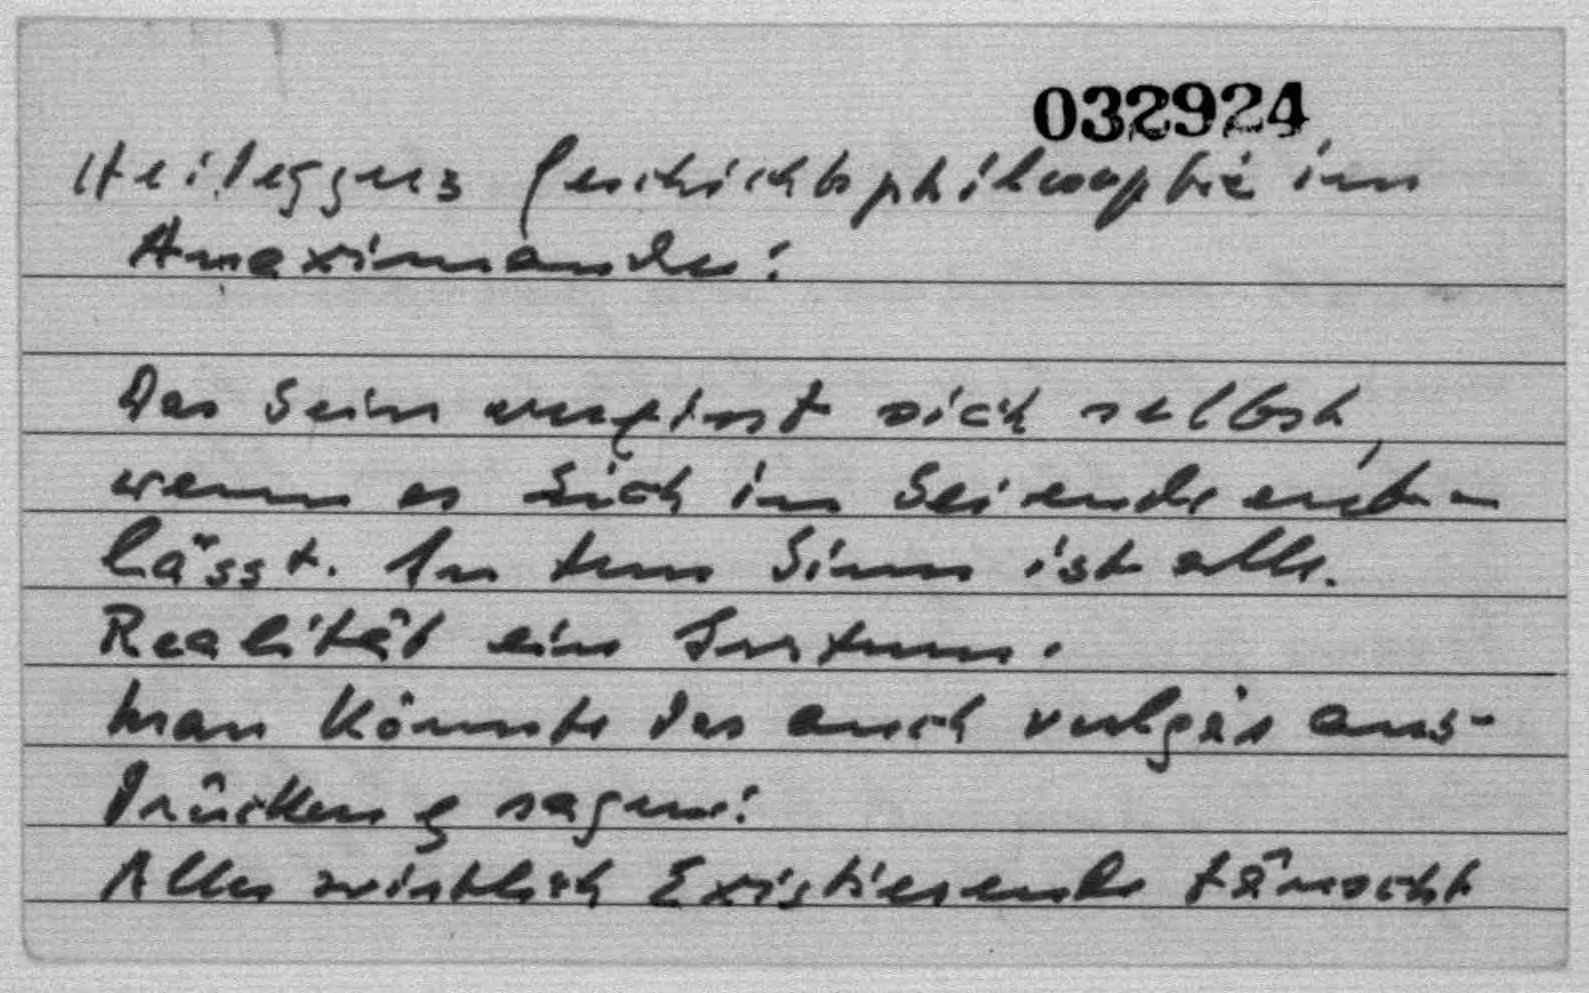 032924
Heideggers Geschichtsphilosophie im
Anaximander:
Das Sein vergisst sich selbst,
wenn es sich im Seiende
lässt. In dem Sinn ist alle
Realität ein Irrtum.
Man könnte das auch vulgär aus-
drücken & sagen:
Alles wirklich Existierende täuscht